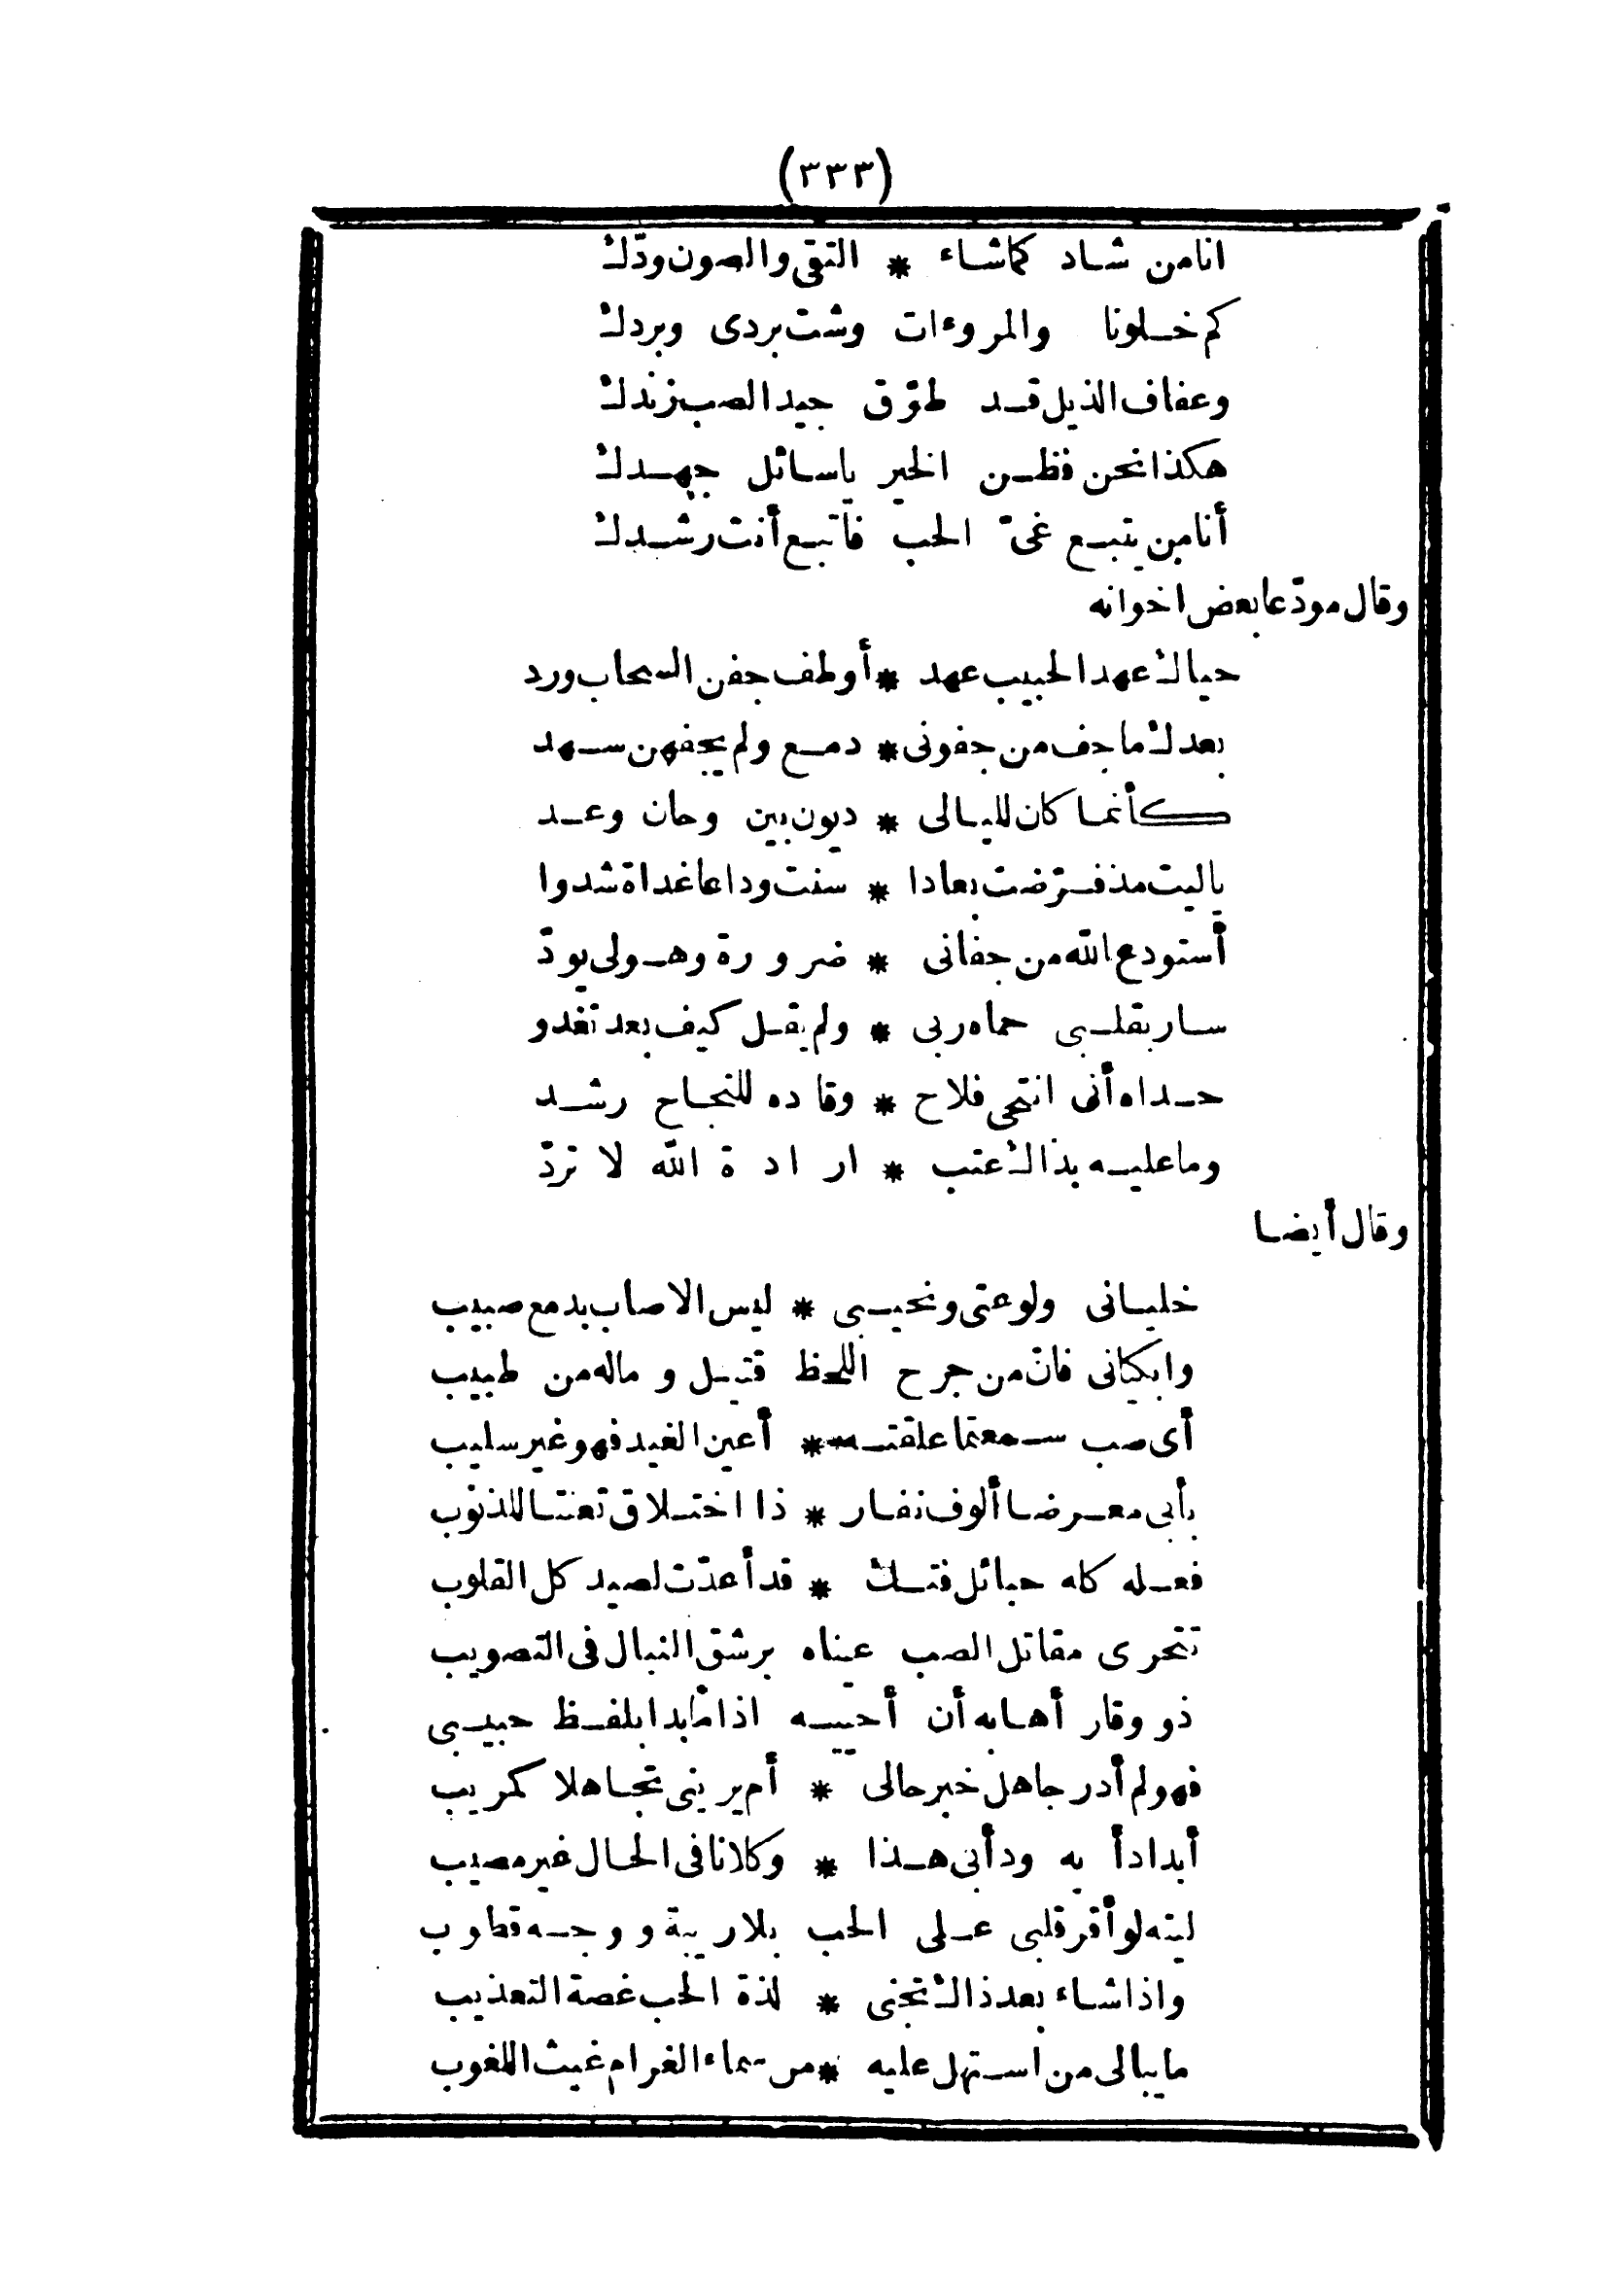 (٣٣٣)
انا من شاد كما شاء * التقى والصون ودّك
كم خلونا والمروءات وشت بردى وبردك
وعفاف الذيل قد طوّق جيد الصب زندك
هكذا نحن فظن الخير ياسائل جهدك
أنا من يتبع غىّ الحب فاتبع أنت رشدك
وقال مودّعا بعض اخوانه
حياك عهد الحبيب عهد * أوطف جفن السحاب ورد
بعدك ما جف من جفونى * دمع ولم يجفهن سهد
كأنما كان لليالى * ديون بين وحان وعد
ياليت مذ فرّضت بعادا * سنت وداعا غداة شدوا
أستودع الله من جفانى * ضرورة وهو لى يودّ
سار بقلبى حماه ربى * ولم يقل كيف بعد تغدو
حداه أنى انتحى فلاح * وقاده للنجاح رشد
وما عليه بذاك عتب * ارادة الله لا تردّ
وقال أيضا
خليانى ولوعتى ونحيبى * ليس الاصاب بدمع صبيب
وابكيانى فانّ من جرح اللحظ قتيل وماله من طبيب
أى صب سمعتما علقته * أعين الغيد فهو غير سليب
بأبى معرضا ألوف نفار * ذا اختلاق تعنتا للذنوب
فعله كله حبائل فتك * قد أعدّت لصيد كل القلوب
تتحرى مقاتل الصب عيناه برشق النبال فى التصويب
ذو وقار أهابه أن أحييه اذا ما بدا بلفظ حبيبى
فهو لم أدر جاهل خبر حالى * أم يرينى تجاهلا كمريب
أبدا دأبه ودأبى هذا * وكلانا فى الحال غير مصيب
ليته لو أقر قلبى على الحب بلاريبة ووجه قطوب
واذا شاء بعد ذاك تجنى * لذة الحب غصة التعذيب
ما يبالى من استهل عليه * من سماء الغرام غيث اللغوب